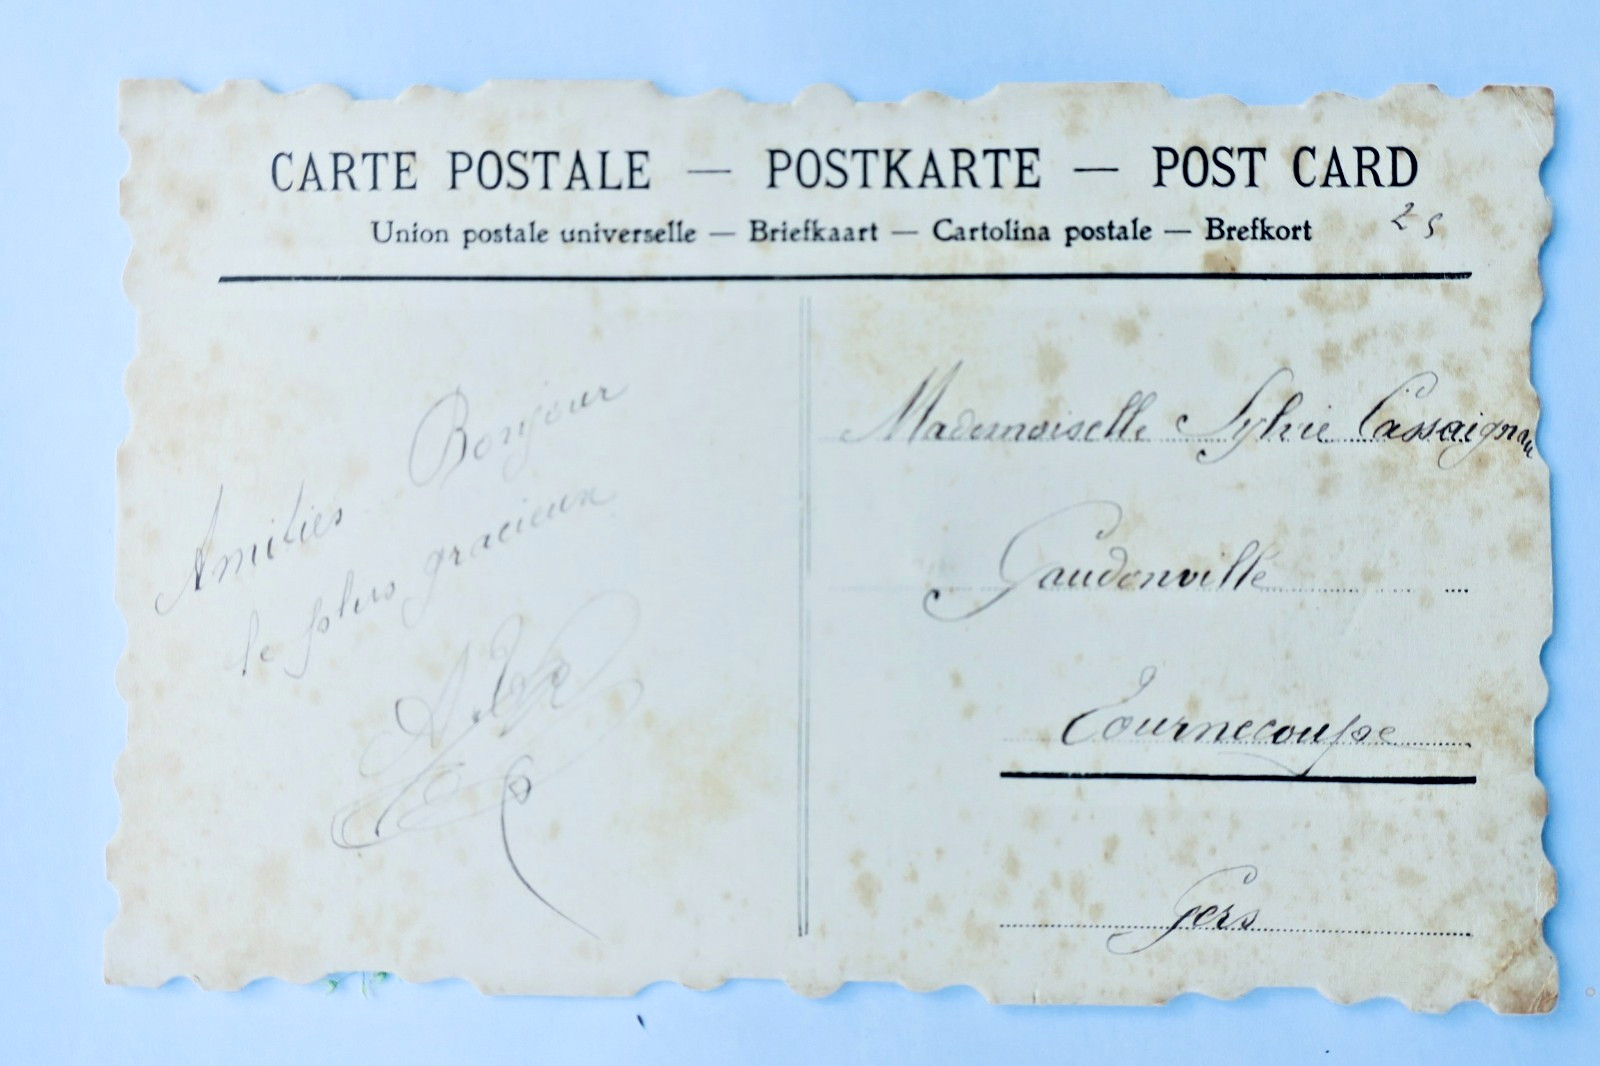 CARTE POSTALE — POSTKARTE — POST CARD
Union postale universelle — Briefkaart — Cartolina postale — Brefkort
25
Amitiés Bonjour
le plus gracieux
Mademoiselle Sylvie Cassaignau
Gaudonville
Tournecoupe
Gers